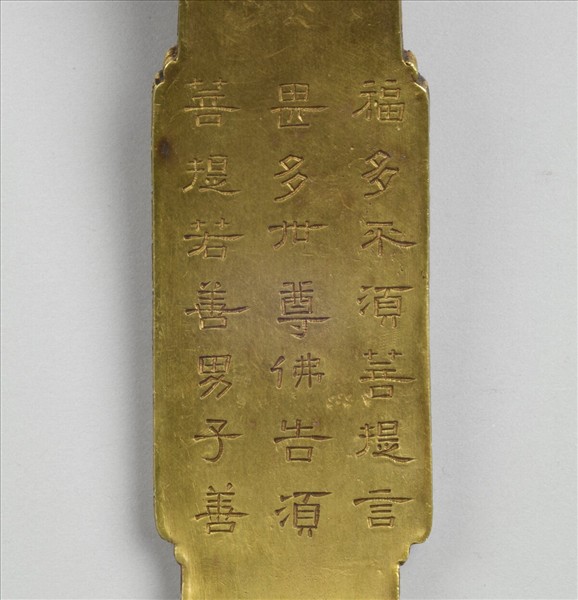 福多不須菩提言
甚多世尊佛告須
菩提若善男子善